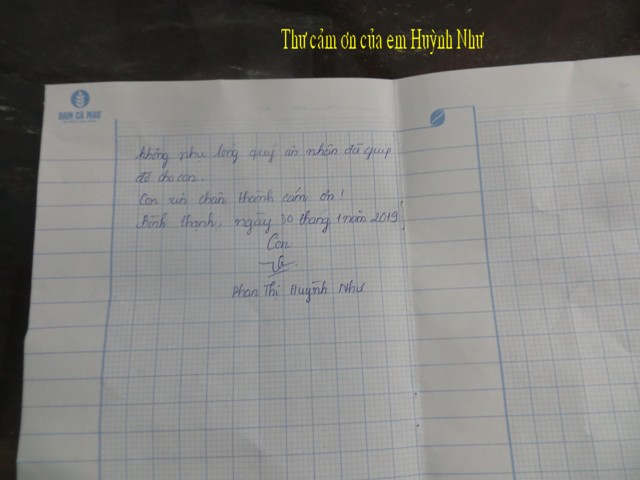 Thư cảm ơn của em Huỳnh Như
ĐẠM CÀ MAU
không như lòng quý ân nhân đã giúp
đỡ cho con.
Con xin chân thành cám ơn!
Bình thạnh, ngày 30 tháng 1 năm 2019
Con
Phan Thị Huỳnh Như